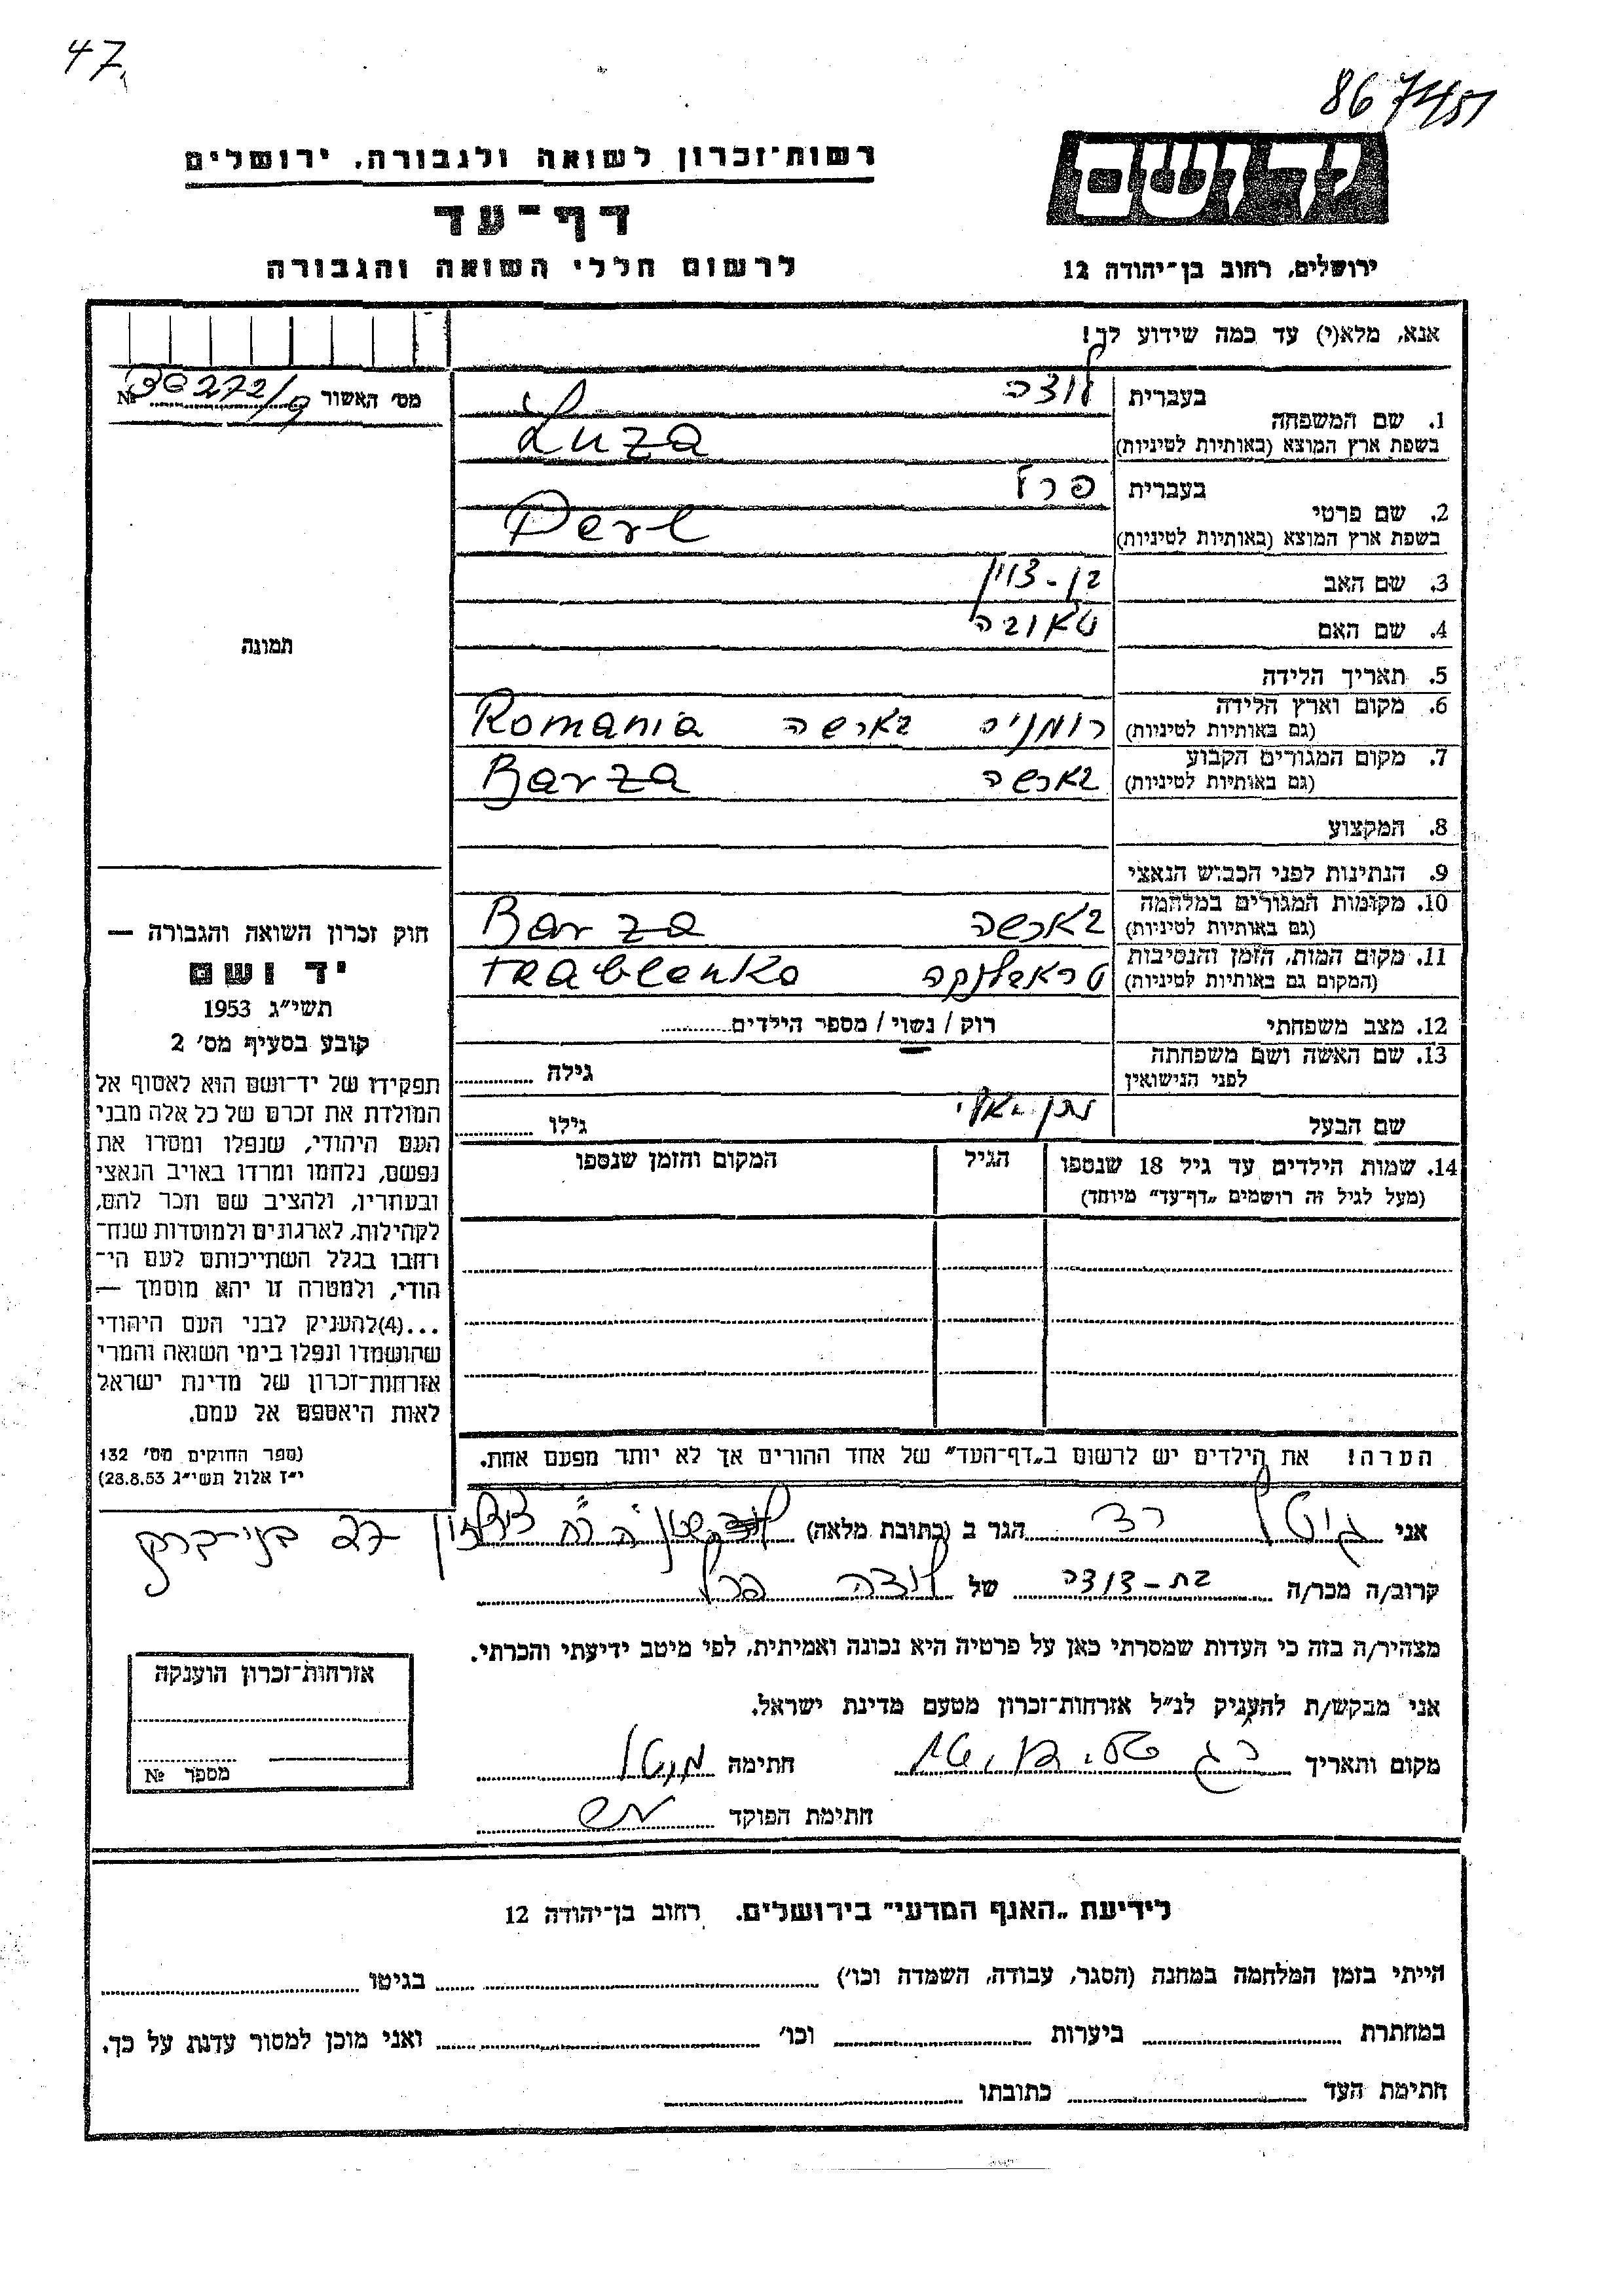 47
867451
רשות־זכרון לשואה ולגבורה, ירושלים
יד ושם
דף־עד
לרשום חללי השואה והגבורה
ירושלים, רחוב בן־יהודה 12
אנא, מלא(י) עד כמה שידוע לך!
מס׳ האשור № 30272/9
1. שם המשפחה
בעברית לוצה
בשפת ארץ המוצא (באותיות לטיניות) Luza
2. שם פרטי
בעברית פרל
בשפת ארץ המוצא (באותיות לטיניות) Perl
3. שם האב בן-ציון
4. שם האם טאובה
5. תאריך הלידה
6. מקום וארץ הלידה (גם באותיות לטיניות) רומניה בארשה Romania
7. מקום המגורים הקבוע (גם באותיות לטיניות) בארשה Barza
8. המקצוע
9. הנתינות לפני הכבוש הנאצי
10. מקומות המגורים במלחמה (גם באותיות לטיניות) בארשה Barza
11. מקום המות, הזמן והנסיבות (המקום גם באותיות לטיניות) טראבלנקה trablenka
12. מצב משפחתי רוק / נשוי / מספר הילדים
13. שם האשה ושם משפחתה לפני הנישואין גילה
שם הבעל נתן גילו
14. שמות הילדים עד גיל 18 שנספו
(מעל לגיל זה רושמים „דף־עד״ מיוחד)
הגיל
המקום והזמן שנספו
הערה! את הילדים יש לרשום ב„דף־העד״ של אחד ההורים אך לא יותר מפעם אחת.
תמונה
חוק זכרון השואה והגבורה —
יד ושם
תשי״ג 1953
קובע בסעיף מס׳ 2
תפקידו של יד־ושם הוא לאסוף אל
המולדת את זכרם של כל אלה מבני
העם היהודי, שנפלו ומסרו את
נפשם, נלחמו ומרדו באויב הנאצי
ובעוזריו, ולהציב שם וזכר להם,
לקהילות, לארגונים ולמוסדות שנח־
רבו בגלל השתייכותם לעם הי־
הודי, ולמטרה זו יהא מוסמך —
...(4)להעניק לבני העם היהודי
שהושמדו ונפלו בימי השואה והמרי
אזרחות־זכרון של מדינת ישראל
לאות היאספם אל עמם.
(ספר החוקים מס׳ 132
י״ז אלול תשי״ג 28.8.53)
אני גיטל רד הגר ב (כתובת מלאה) 27 בני-ברק
קרוב/ה מכר/ה בת-דודה של לוצה פרל
מצהיר/ה בזה כי העדות שמסרתי כאן על פרטיה היא נכונה ואמיתית, לפי מיטב ידיעתי והכרתי.
אני מבקש/ת להעניק לנ״ל אזרחות־זכרון מטעם מדינת ישראל.
מקום ותאריך חתימה
חתימת הפוקד
אזרחות־זכרון הוענקה
מספר №
לידיעת „האגף המדעי״ בירושלים. רחוב בן־יהודה 12
הייתי בזמן המלחמה במחנה (הסגר, עבודה, השמדה וכו׳) בגיטו
במחתרת ביערות וכו׳ ואני מוכן למסור עדות על כך.
חתימת העד כתובתו